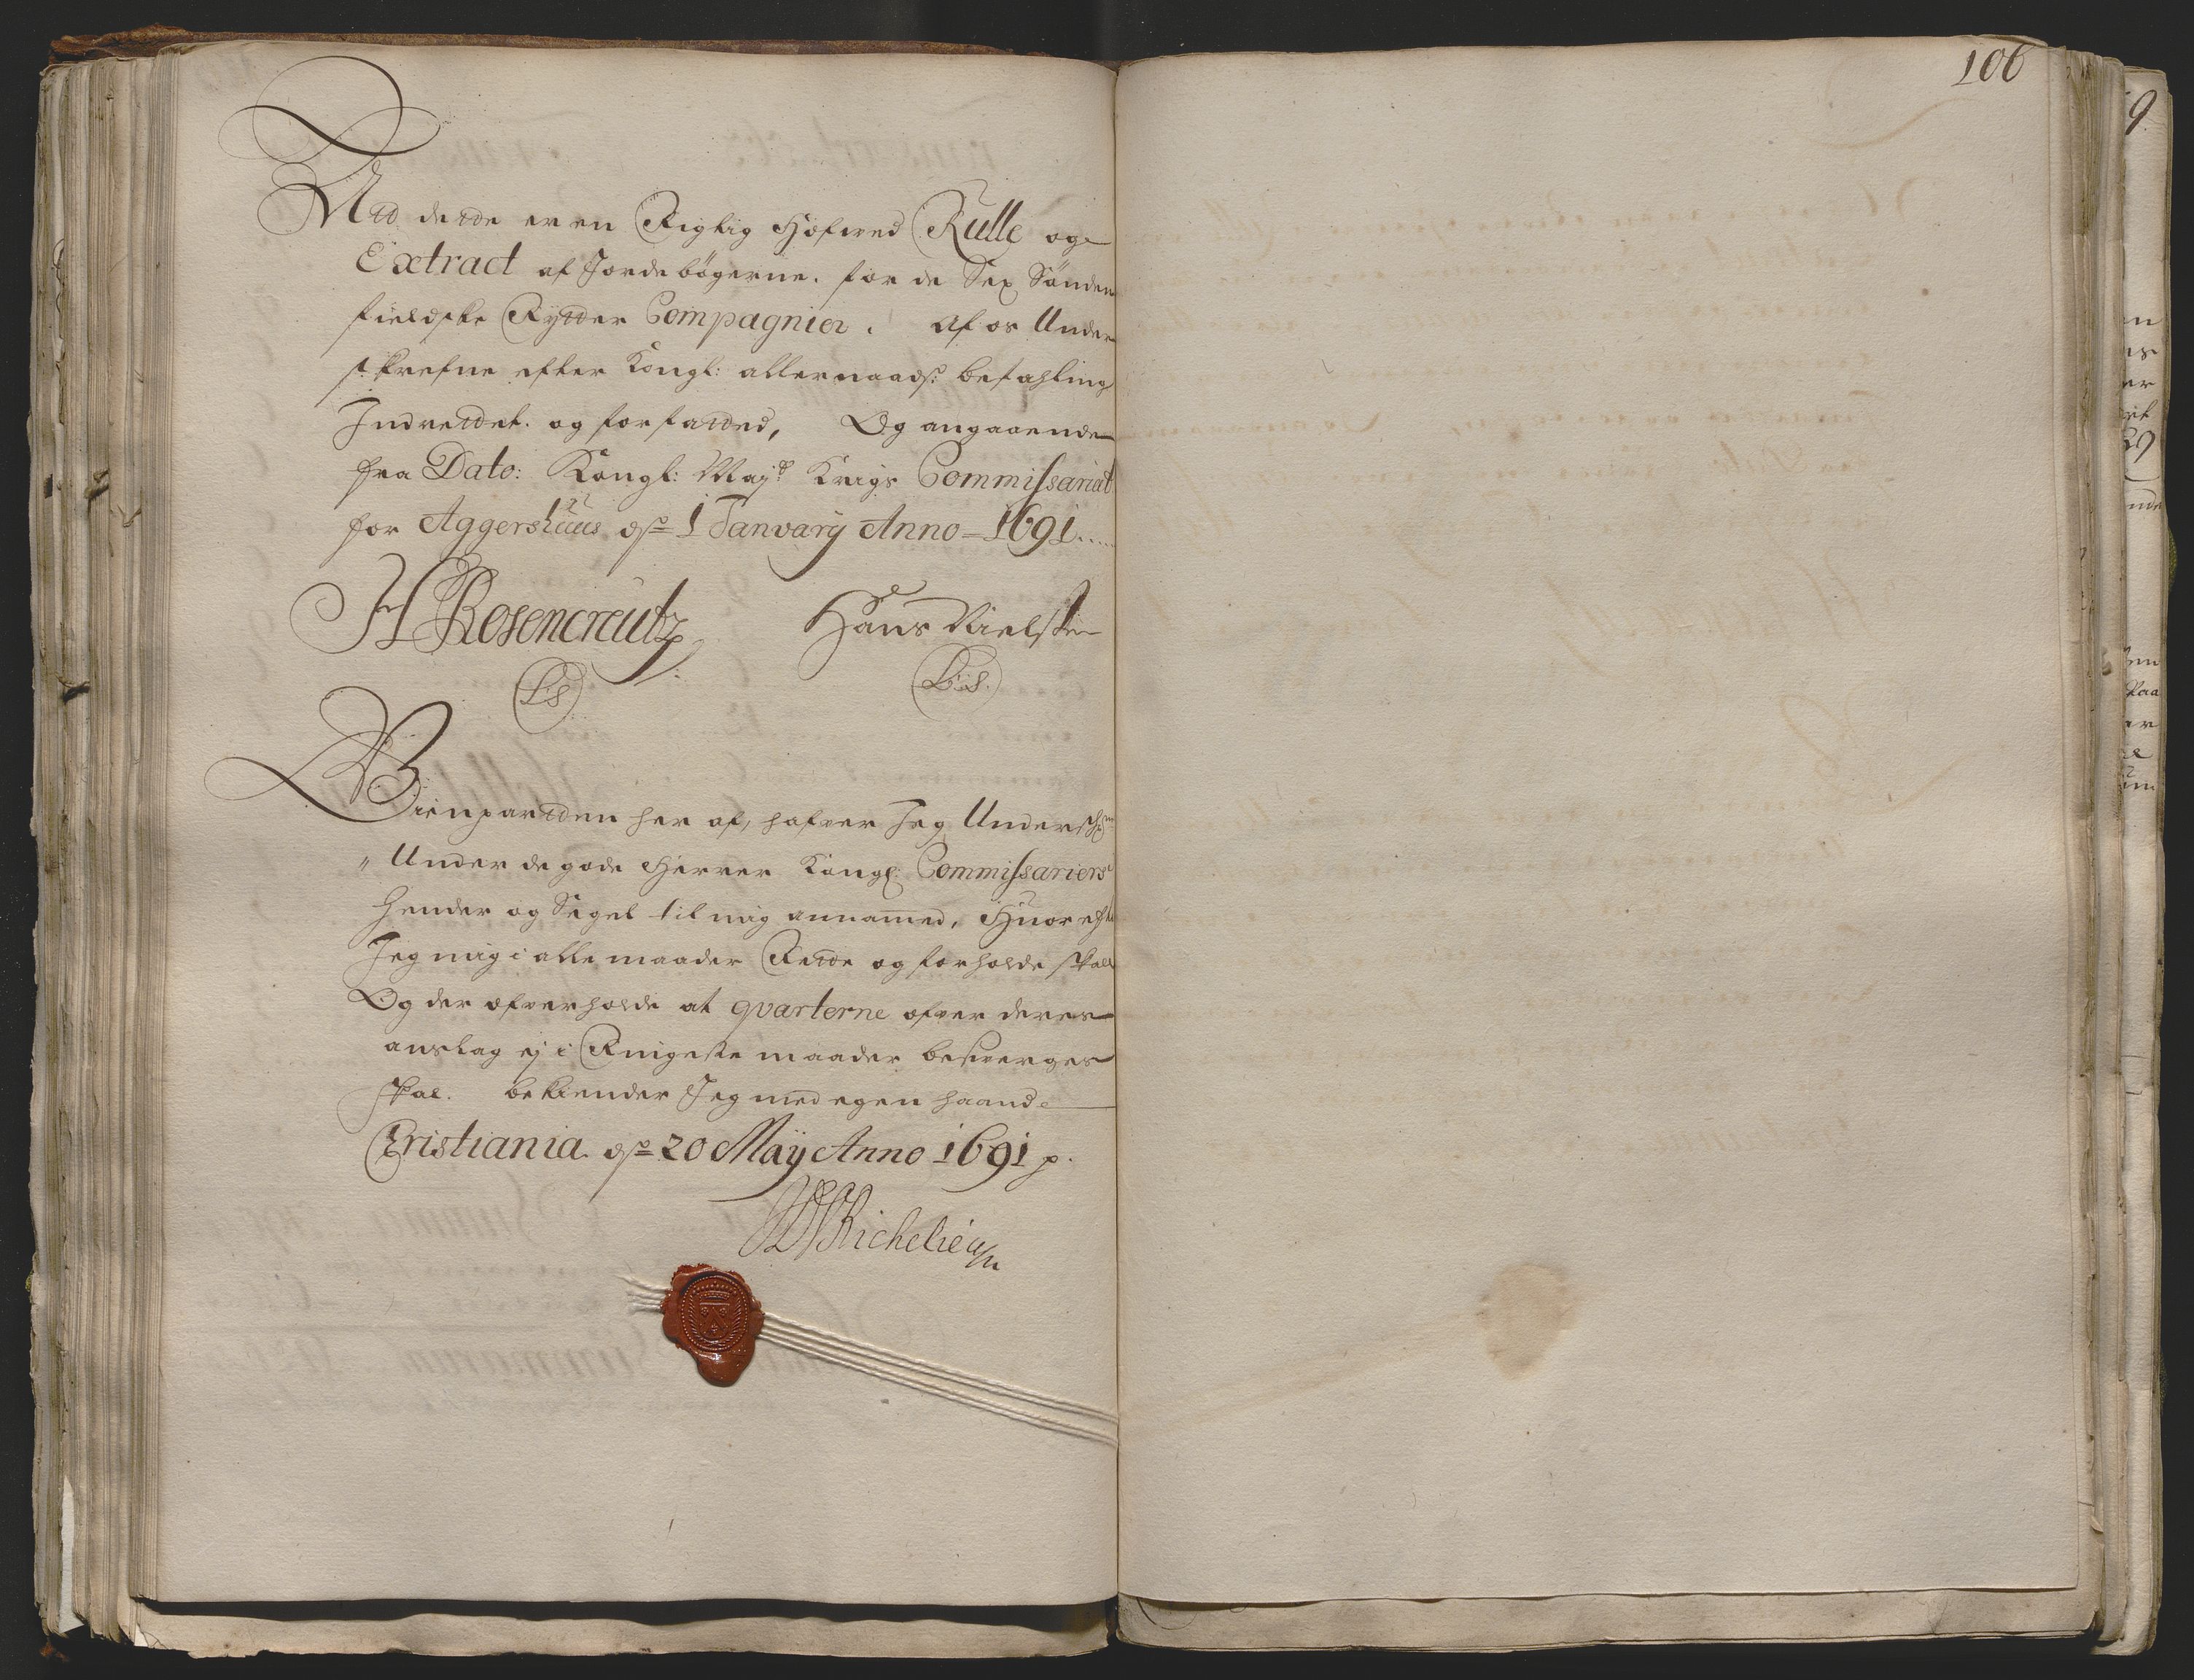 106
At dette er en Rigtig Hofved Rulle og
Extract af Jordebögerne. for de Sex Sönden
fieldske Rytter Compagnier. Af os Under
skrefne efter Kongl: allernaads: befahling
Indrettet. og forfatted, Og angaaende
fra Dato: Kongl: May:tt Krigs Commissariat
for Aggershuus d 1 January Anno 1691.....
H Rosencreutz Hans Nielsen
LS L:S.
Gienparten her af, hafver Jeg Undersch:
Under de gode Herrer Kongl: Commissariers
Hender og Segel til mig annammed, Huor efter
Jeg mig i alle maader Rette og forholde skal
Og der ofverholde at qvarterne ofver deres
anslag ej i Ringeste maader besverges
skal. bekiender Jeg med egen haand
Cristiania d 20 Maÿ Anno 1691 p.
Richelieu